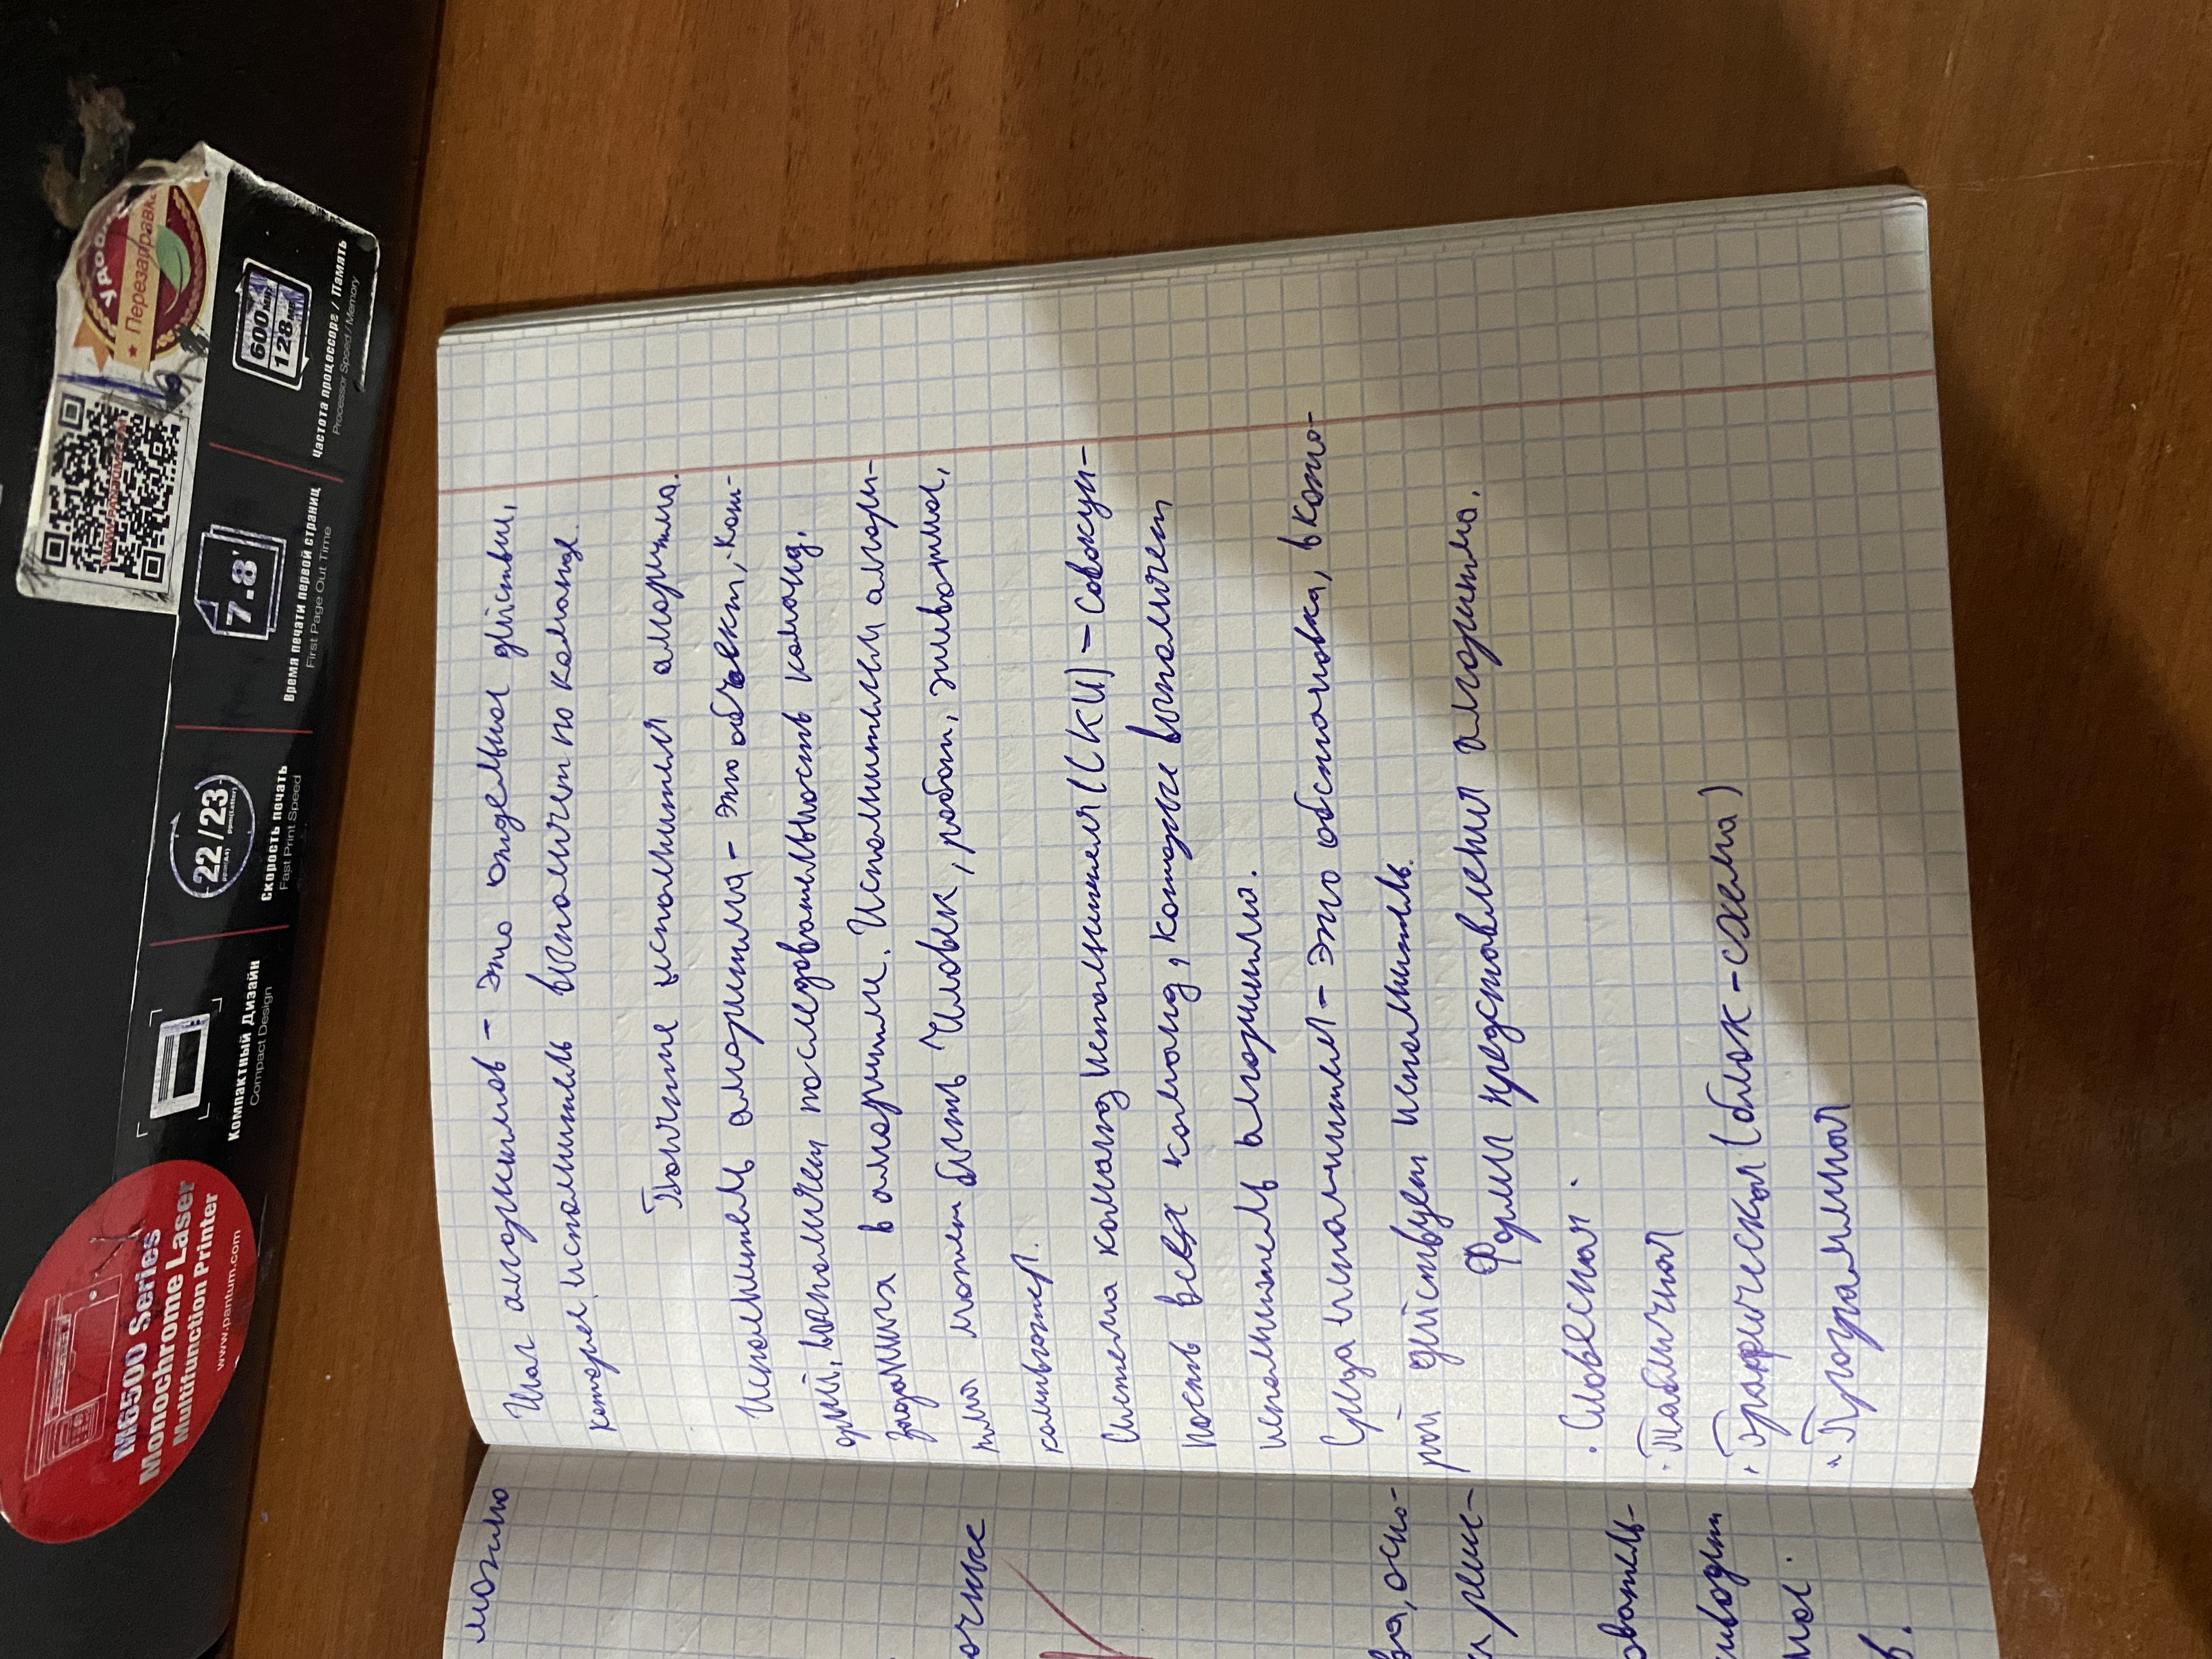 Шаг алгоритмов - это отдельное действие,
которое исполнитель выполняет по команде.
Понятие исполнителя алгоритма.
Исполнитель алгоритма - это объект, кот-
орый, выполняет последовательность команд,
заданных в алгоритме. Исполнителем алгори-
тма может быть Человек, робот, животное,
компьютер.
Система команд исполнителя (СКИ) - совокуп-
ность всех команд, которые выполняет
исполнитель алгоритма.
Среда исполнителя - это обстановка, в кото-
рой действует исполнитель.
Формы представления алгоритма.
· Словесная.
· Табличная
· Графическая (блок-схема)
· Программная
можно
очные
ва, осно-
реше-
ователь-
иводит
в.
M6500 Series
Monochrome Laser
Multifunction Printer
www.pantum.com
Компактный Дизайн
Compact Design
22/23
ppm(A4) ppm(Letter)
Скорость печать
Fast Print Speed
7.8"
Время печати первой страниц
First Page Out Time
600
128
частота процессорг / Память
Processor Speed / Memory
WWW.PANTUM.COM
★ Перезаправка